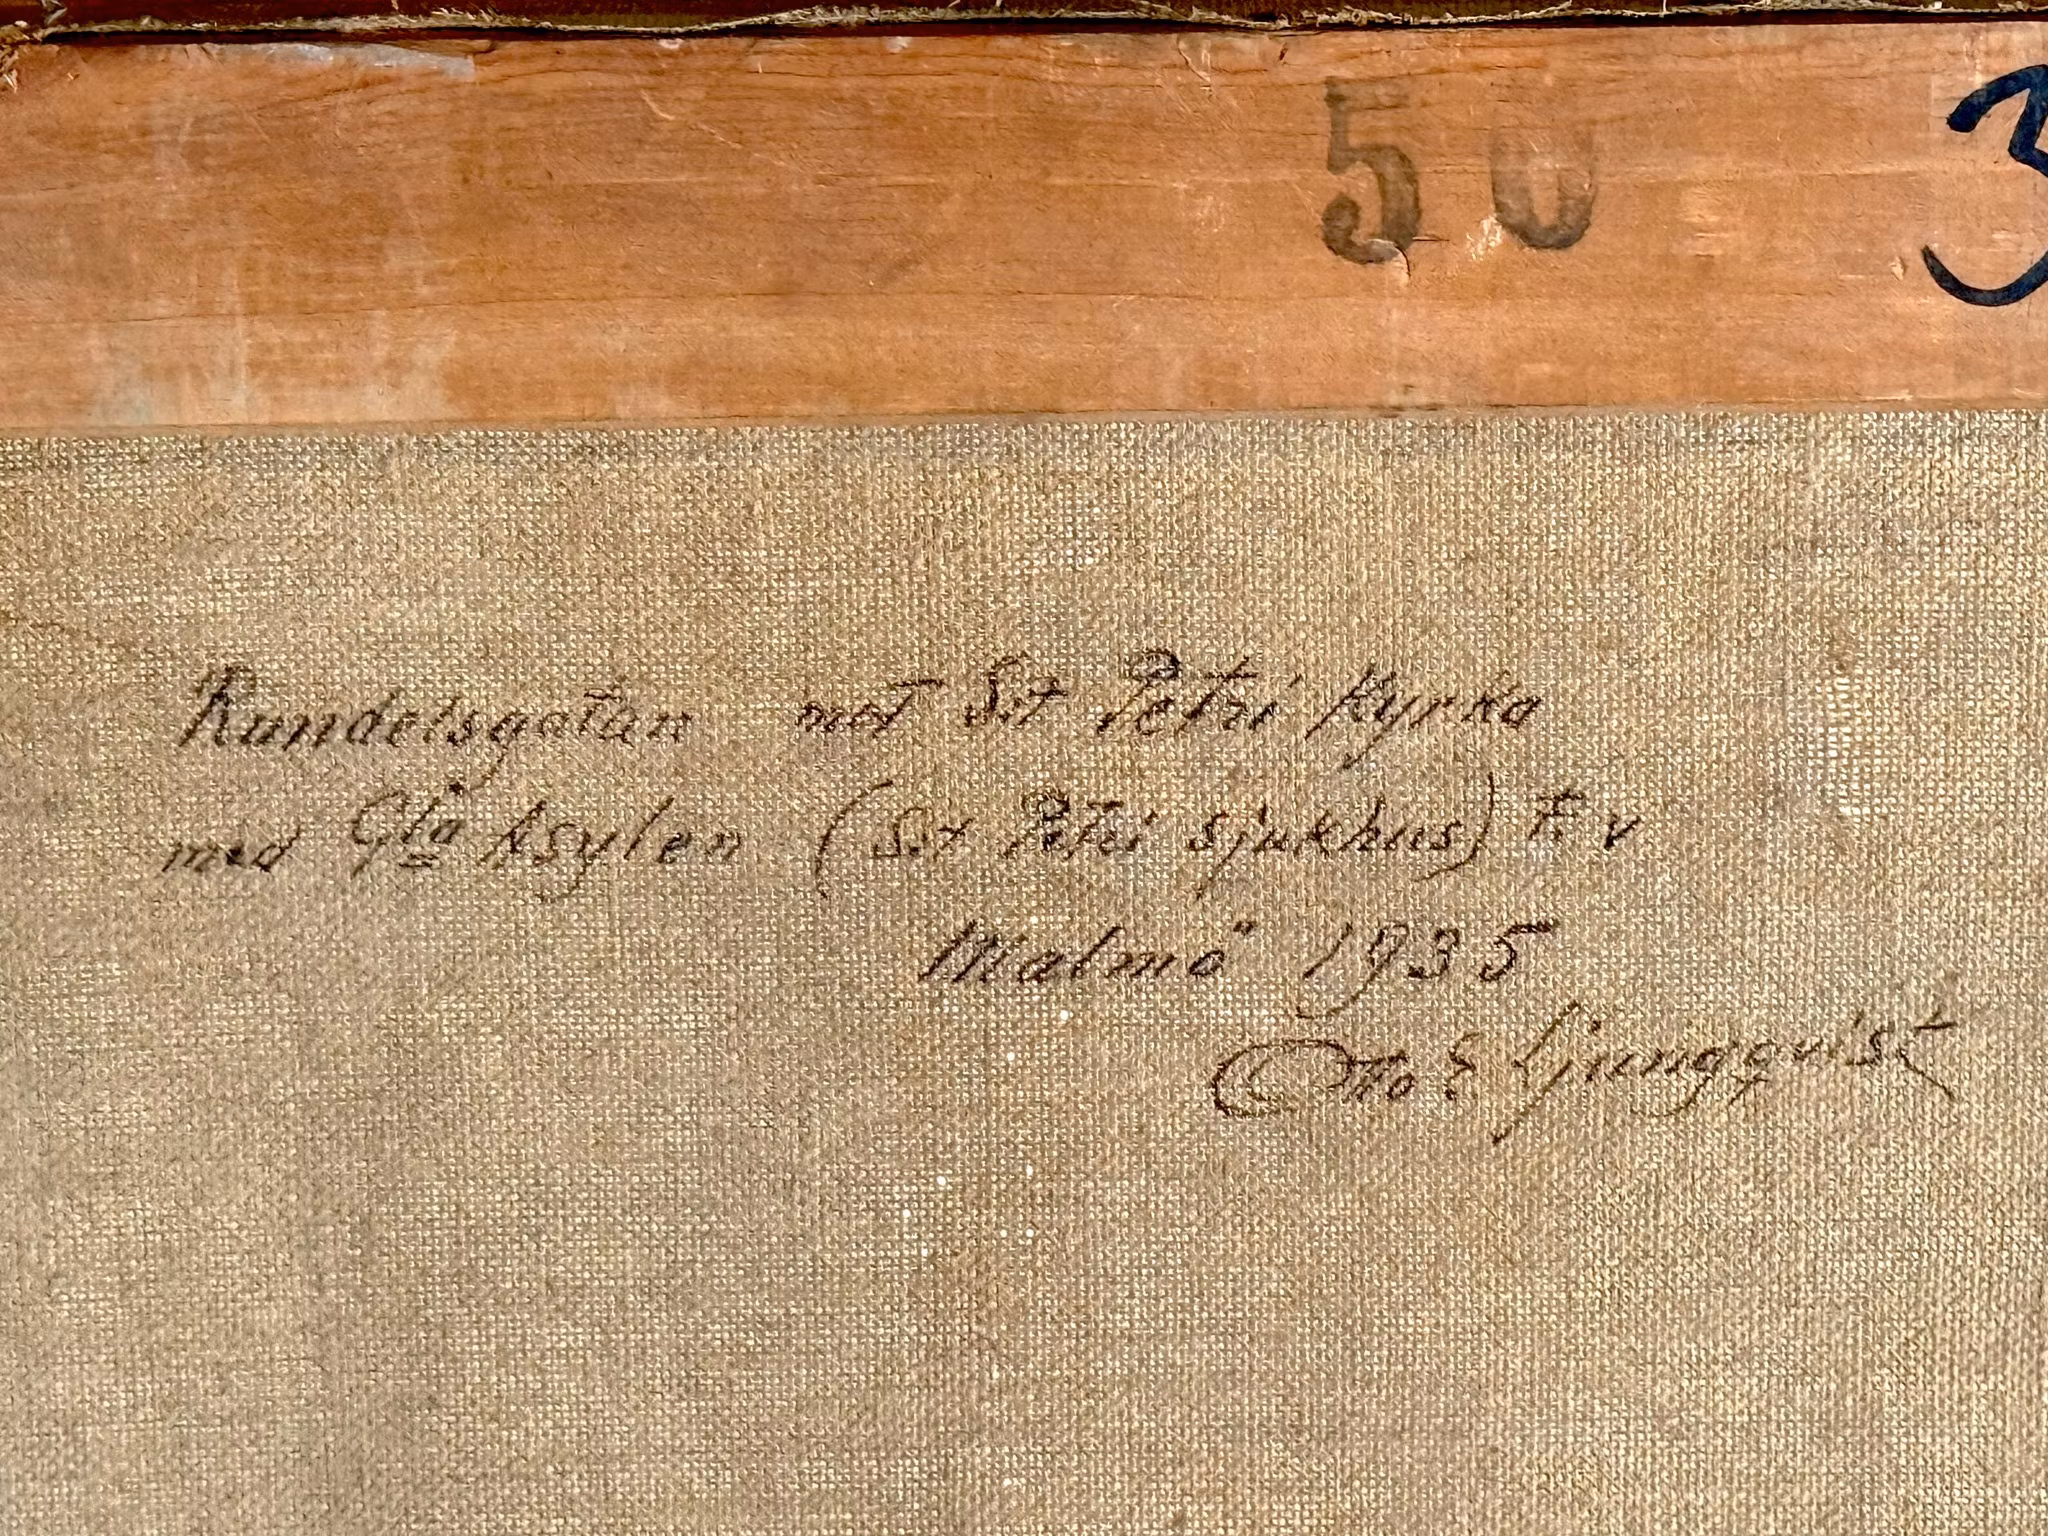 50 3
Rundelsgatan mot S:t Petri Kyrka
med Gla Asylen (S:t Petri sjukhus) T. v
Malmö 1935
Otto E Ljungqvist